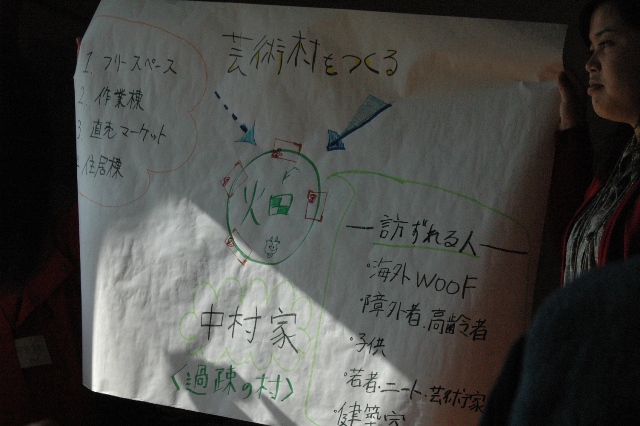 芸術村をつくる
1. フリースペース
2. 作業棟
3 直売マーケット
4 住居棟
畑
中村家
〈過疎の村〉
訪ずれる人
・海外WOOF
・障外者、高齢者
・子供
・若者・ニート・芸術家
・建築家